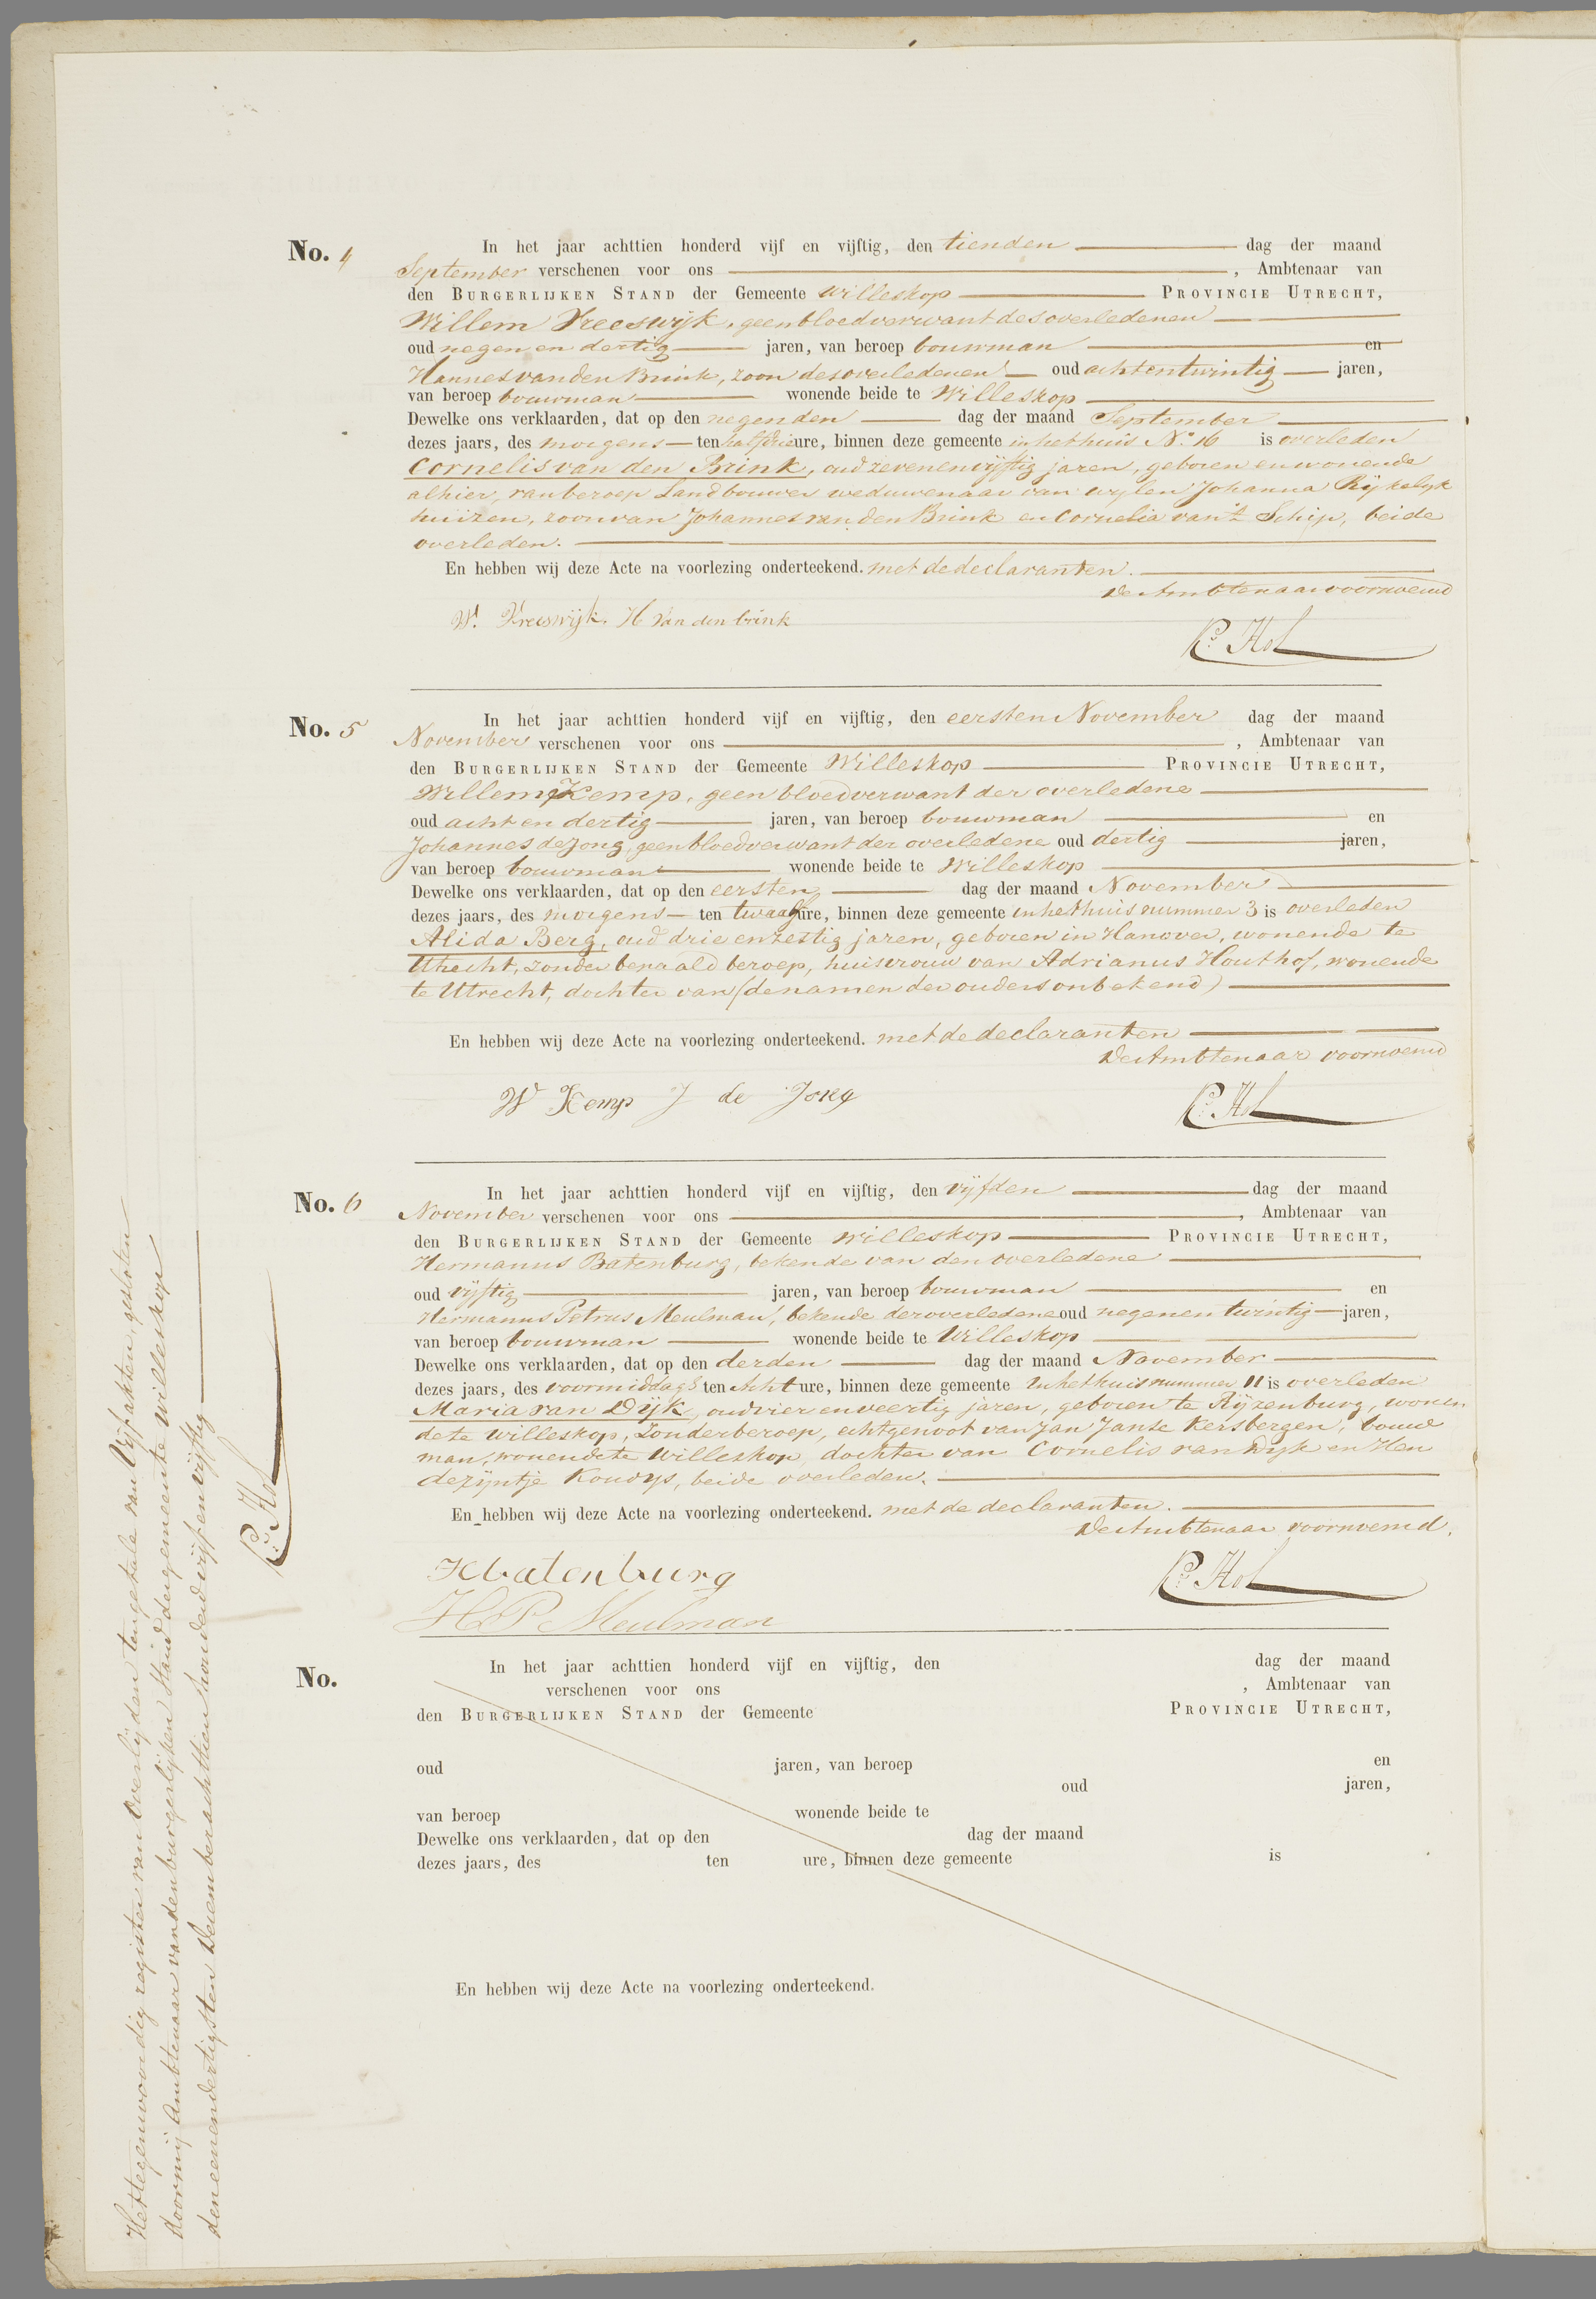 No. 4
In het jaar achttien honderd vijf en vijftig, den tienden dag der maand
September verschenen voor ons , Ambtenaar van
den BURGERLIJKEN STAND der Gemeente Willeskop PROVINCIE UTRECHT,
Willem Vreeswijk, geen bloedverwant des overledenen
oud negen en dertig jaren, van beroep bouwman en
Hannes van den Brink, zoon des overledenen oud acht en twintig jaren,
van beroep bouwman wonende beide te Willeskop
Dewelke ons verklaarden, dat op den negenden dag der maand September
dezes jaars, des morgens ten half drie ure, binnen deze gemeente in het huis No. 16 is overleden
Cornelis van den Brink, oud zeven en vijftig jaren, geboren en wonende
alhier, van beroep Landbouwer weduwenaar van wylen Johanna Rijkelyk
huizen, zoon van Johannes van den Brink en Cornelia van 't Schip, beide
overleden.
En hebben wij deze Acte na voorlezing onderteekend. met de declaranten.
De Ambtenaar voornoemd
W. Vreeswijk. H van den brink
Ps. Hol
No. 5
In het jaar achttien honderd vijf en vijftig, den eersten November dag der maand
November verschenen voor ons , Ambtenaar van
den BURGERLIJKEN STAND der Gemeente Willeskop PROVINCIE UTRECHT,
Willem Kemp, geen bloedverwant der overledene
oud acht en dertig jaren, van beroep bouwman en
Johannes de Jong, geen bloedverwant der overledene oud dertig jaren,
van beroep bouwman wonende beide te Willeskop
Dewelke ons verklaarden, dat op den eersten dag der maand November
dezes jaars, des morgens ten twaalf ure, binnen deze gemeente in het huis nummer 3 is overleden
Alida Berg, oud drie en zestig jaren, geboren in Hanover, wonende te
Utrecht, zonder bepaald beroep, huisvrouw van Adrianus Houthof, wonende
te Utrecht, dochter van (de namen der ouders onbekend)
En hebben wij deze Acte na voorlezing onderteekend. met de declaranten
De Ambtenaar voornoemd
W Kemp J de Jong
Ps. Hol
No. 6
In het jaar achttien honderd vijf en vijftig, den vijfden dag der maand
November verschenen voor ons , Ambtenaar van
den BURGERLIJKEN STAND der Gemeente Willeskop PROVINCIE UTRECHT,
Hermanus Batenburg, bekende van den overledene
oud vijftig jaren, van beroep bouwman en
Hermanus Petrus Meulman, bekende der overledene oud negen en twintig jaren,
van beroep bouwman wonende beide te Willeskop
Dewelke ons verklaarden, dat op den derden dag der maand November
dezes jaars, des voormiddags ten Acht ure, binnen deze gemeente in het huis nummer 11 is overleden
Maria van Dijk, oud vier en veertig jaren, geboren te Rijzenburg, wonen
de te Willeskop, zonder beroep, echtgenoot van Jan Janse Kersbergen, bouw
man, wonende te Willeskop dochter van Cornelis van Dijk en Hen
derijntje Koudys, beide overleden.
En hebben wij deze Acte na voorlezing onderteekend. met de declaranten.
De Ambtenaar voornoemd.
H batenburg
Ps. Hol
H P Meulman
No.
In het jaar achttien honderd vijf en vijftig, den dag der maand
verschenen voor ons , Ambtenaar van
den BURGERLIJKEN STAND der Gemeente PROVINCIE UTRECHT,
oud jaren, van beroep en
oud jaren,
van beroep wonende beide te
Dewelke ons verklaarden, dat op den dag der maand
dezes jaars, des ten ure, binnen deze gemeente is
En hebben wij deze Acte na voorlezing onderteekend.
Het tegenwoordig register van Overlijden ten getale van Vijf akten, gesloten
door mij Ambtenaar van den burgerlijken Stand der gemeente Willeskop
den een en dertigsten December achttien honderd vijf en vijftig
Ps. Hol